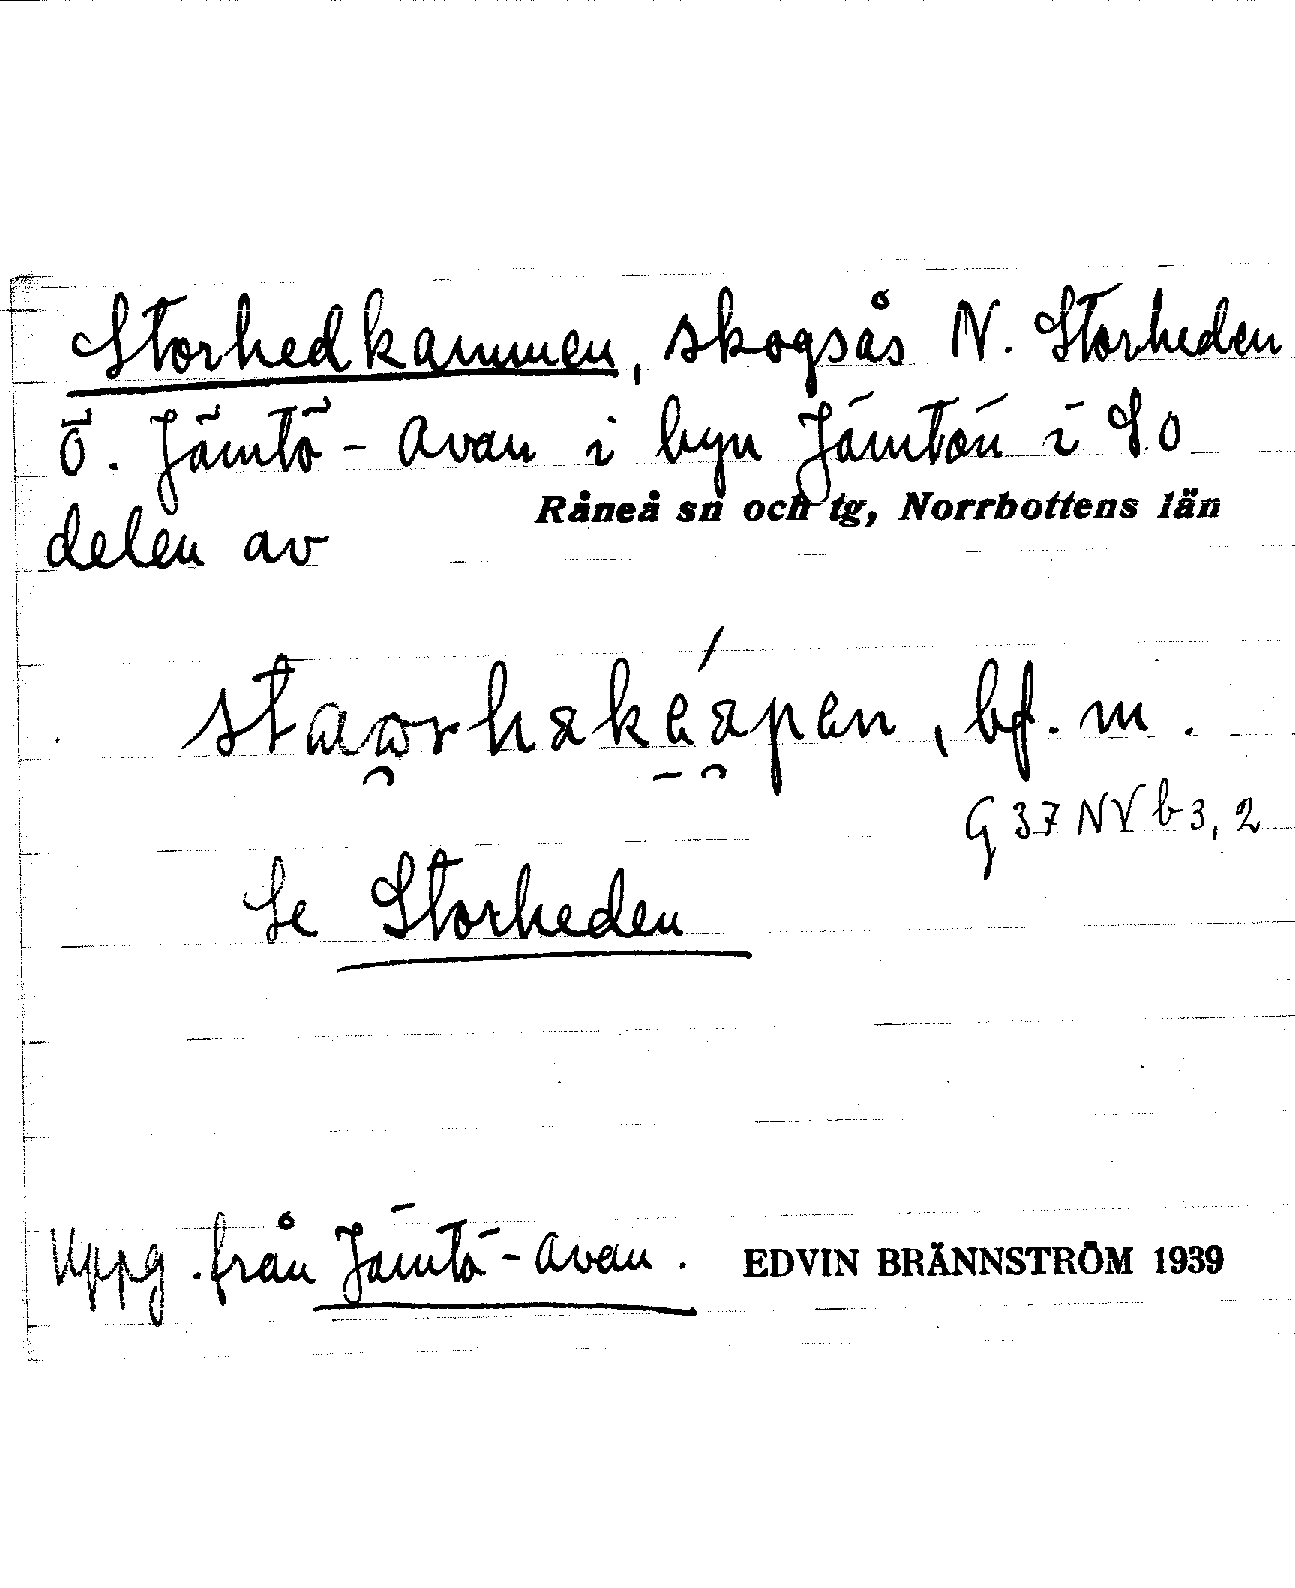 Storhedkammen, skogsås N. Storheden
Ö. Jämtö-Avan i byn Jämtön i S.O
Råneå sn och tg, Norrbottens län
delen av
bf. m.
G 37 NV b 3, 2
Se Storheden
Uppg. från Jämtö-Avan.
EDVIN BRÄNNSTRÖM 1939